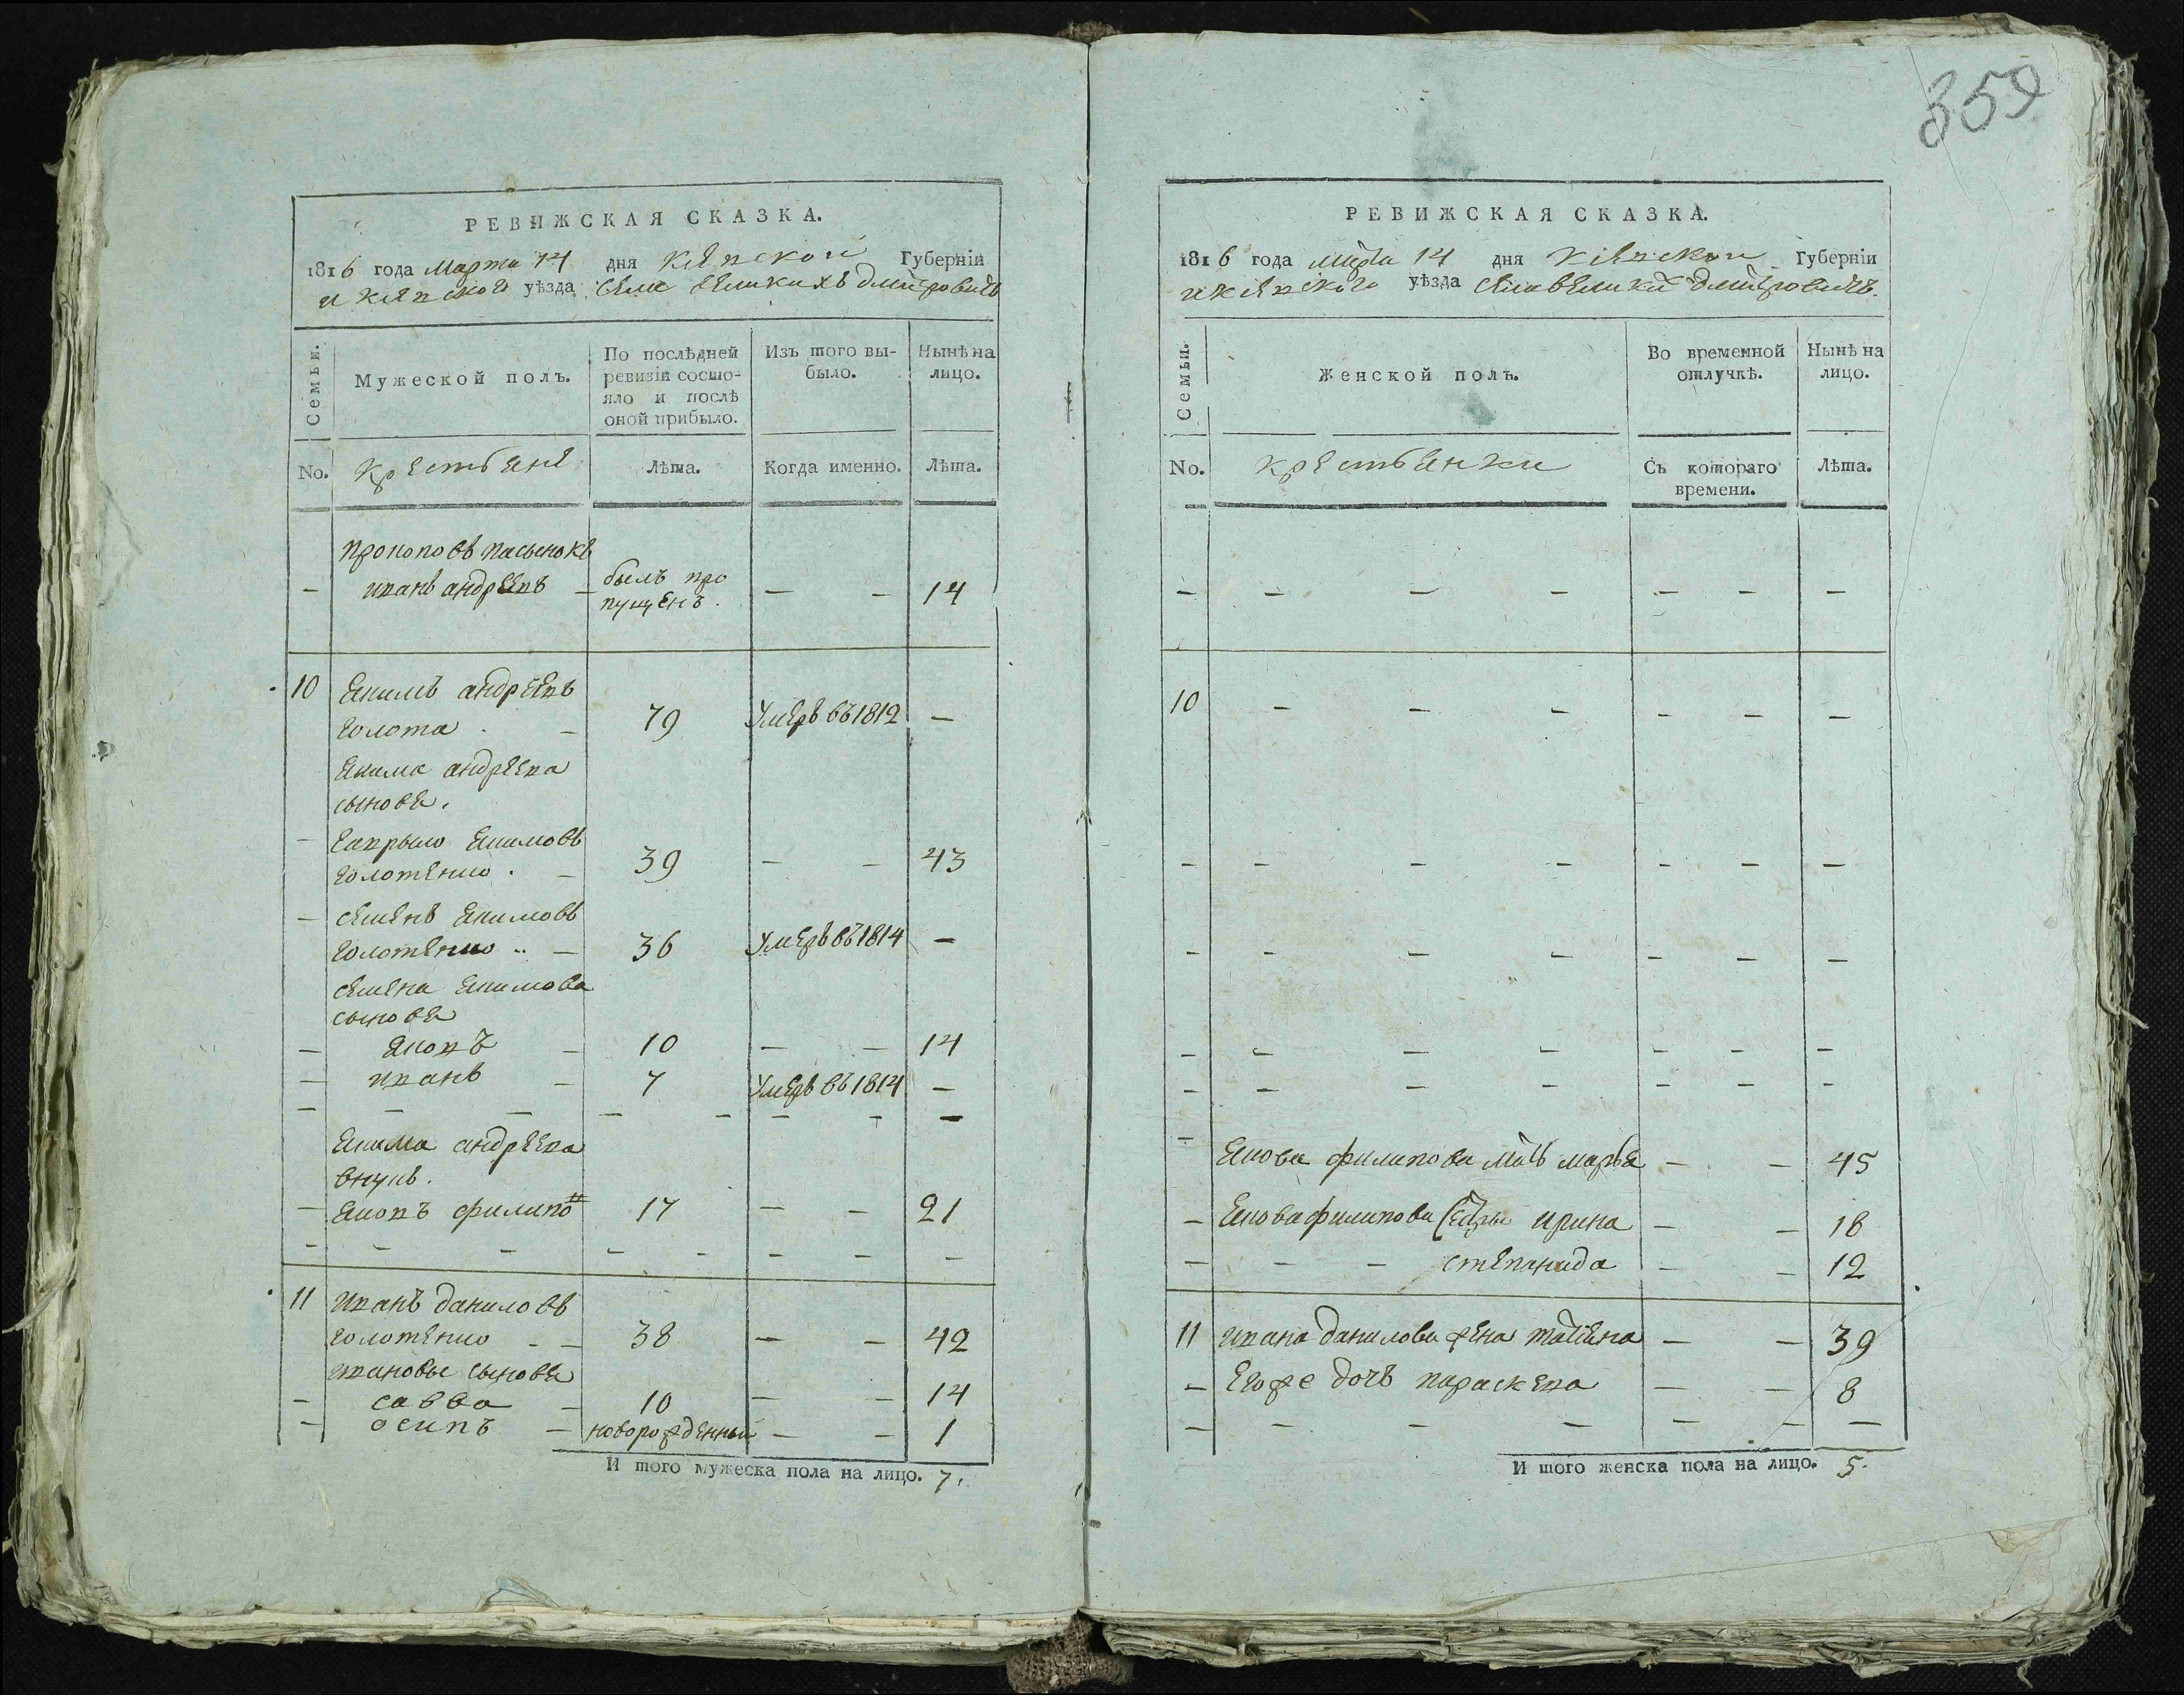 359
РЕВИЖСКАЯ СКАЗКА.
1816 года Марта 14 дня Кіевской Губерніи
и Кіевского уѣзда Села Великихъ Дмитровичъ
Семьи.
Мужеской полъ.
По послѣдней ревизіи состояло и послѣ оной прибыло.
Изъ того выбыло.
Нынѣ на лицо.
No. Крестьяне Лѣта. Когда именно. Лѣта.
прокоповъ пасынокъ
— иванъ андреевъ — былъ пропущенъ. — — 14
10 Екимъ андреевъ
голота . — 79 Умеръ въ 1812 —
Екима андреева
сыновья.
— гаврыло Екимовъ
голотенко . — 39 — — 43
— семенъ Екимовъ
голотенко .. — 36 Умеръ въ 1814 —
семена Екимова
сыновья
— яковъ — 10 — — 14
— иванъ — 7 Умеръ въ 1814 —
— — — — — — — —
Екима андреева
внукъ.
— яковъ филипо 17 — — 21
— — — — — — — —
11 иванъ даниловъ
голотенко - — 38 — — 42
ивановы сыновья
— савва — 10 — — 14
— осипъ — новорожденный — — 1
И того мужеска пола на лицо. 7.
РЕВИЖСКАЯ СКАЗКА.
1816 года марта 14 дня Кіевской Губерніи
и Кіевского уѣзда Села Великихъ Дмитровичъ.
Семьи.
Женской полъ.
Во временной отлучкѣ.
Нынѣ на лицо.
No. Крестьянки Съ котораго времени. Лѣта.
— — — — — — —
10 — — — — — —
— — — — — — —
— — — — — — —
— — — — — — —
— — — — — — —
— якова филипова мать марья — — 45
— якова филипова сестры ирина — — 18
— — — степанида — — 12
11 ивана данилова жена татіяна — — 39
— Его же дочь параскева — — 8
— — — — — — —
И того женска пола на лицо. 5.